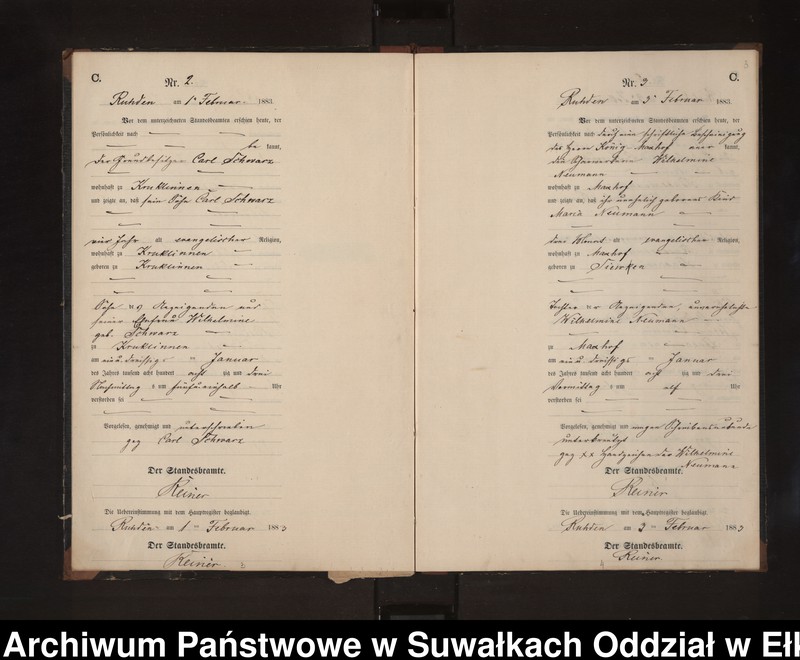 C.
Nr. 2.
Ruhden am 1ⁿ Februar 1883.
Vor dem unterzeichneten Standesbeamten erschien heute, der
Persönlichkeit nach
be kannt,
der Grundbesitzer Carl Schwarz
wohnhaft zu Kruklinnen
und zeigte an, daß sein Sohn Carl Schwarz
ein Jahr alt evangelischer Religion,
wohnhaft zu Kruklinnen
geboren zu Kruklinnen
Sohn Anzeigenden und
seiner Ehefrau Wilhelmine
geb. Schwarz
zu Kruklinnen
am ein u. dreissigs Januar
des Jahres tausend acht hundert acht zig und drei
Nachmittag s um Uhr
verstorben sei
Vorgelesen, genehmigt und unterschrieben
gez Carl Schwarz
Der Standesbeamte.
Keiner
Die Uebereinstimmung mit dem Hauptregister beglaubigt.
Ruhden am 1 ten Februar 1883
Der Standesbeamte.
Keiner
3
Nr. 3
C.
Ruhden am 3ⁿ Februar 1883.
Vor dem unterzeichneten Standesbeamten erschien heute, der
Persönlichkeit nach durch eine schriftliche Bescheinigung
des Herrn König Maxhof aner kannt,
die Wilhelmine
Neumann
wohnhaft zu Maxhof
und zeigte an, daß ihr unehelich geborenes Kind
Maria Neumann
drei Monat alt evangelischer Religion,
wohnhaft zu Maxhof
geboren zu Siewken
Tochter der Anzeigenden, unverehelichte
Wilhelmine Neumann
zu Maxhof
am ein u dreissigs Januar
des Jahres tausend acht hundert acht zig und drei
Vormittag s um elf Uhr
verstorben sei
Vorgelesen, genehmigt und wegen Schreibensunkunde
unterkreuzt
gez xx Handzeichen der Wilhelmine
Neumann
Der Standesbeamte.
Keiner
Die Uebereinstimmung mit dem Hauptregister beglaubigt.
Ruhden am 3 ten Februar 1883
Der Standesbeamte.
Keiner
Archiwum Państwowe w Suwałkach Oddział w Ełk